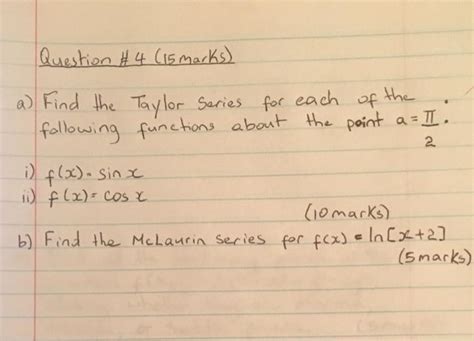 Question # 4 (15 marks)
a) Find the Taylor Series for each of the
following functions about the point a = π/2 :
i) f(x) = sin x
ii) f(x) = cos x
(10 marks)
b) Find the McLaurin series for f(x) = ln[x+2]
(5 marks)